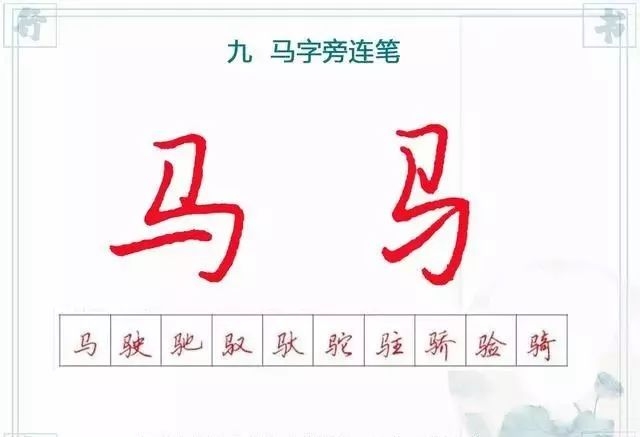 行 书
九 马字旁连笔
马 马
马 驶 驰 驭 驮 驼 驻 骄 验 骑